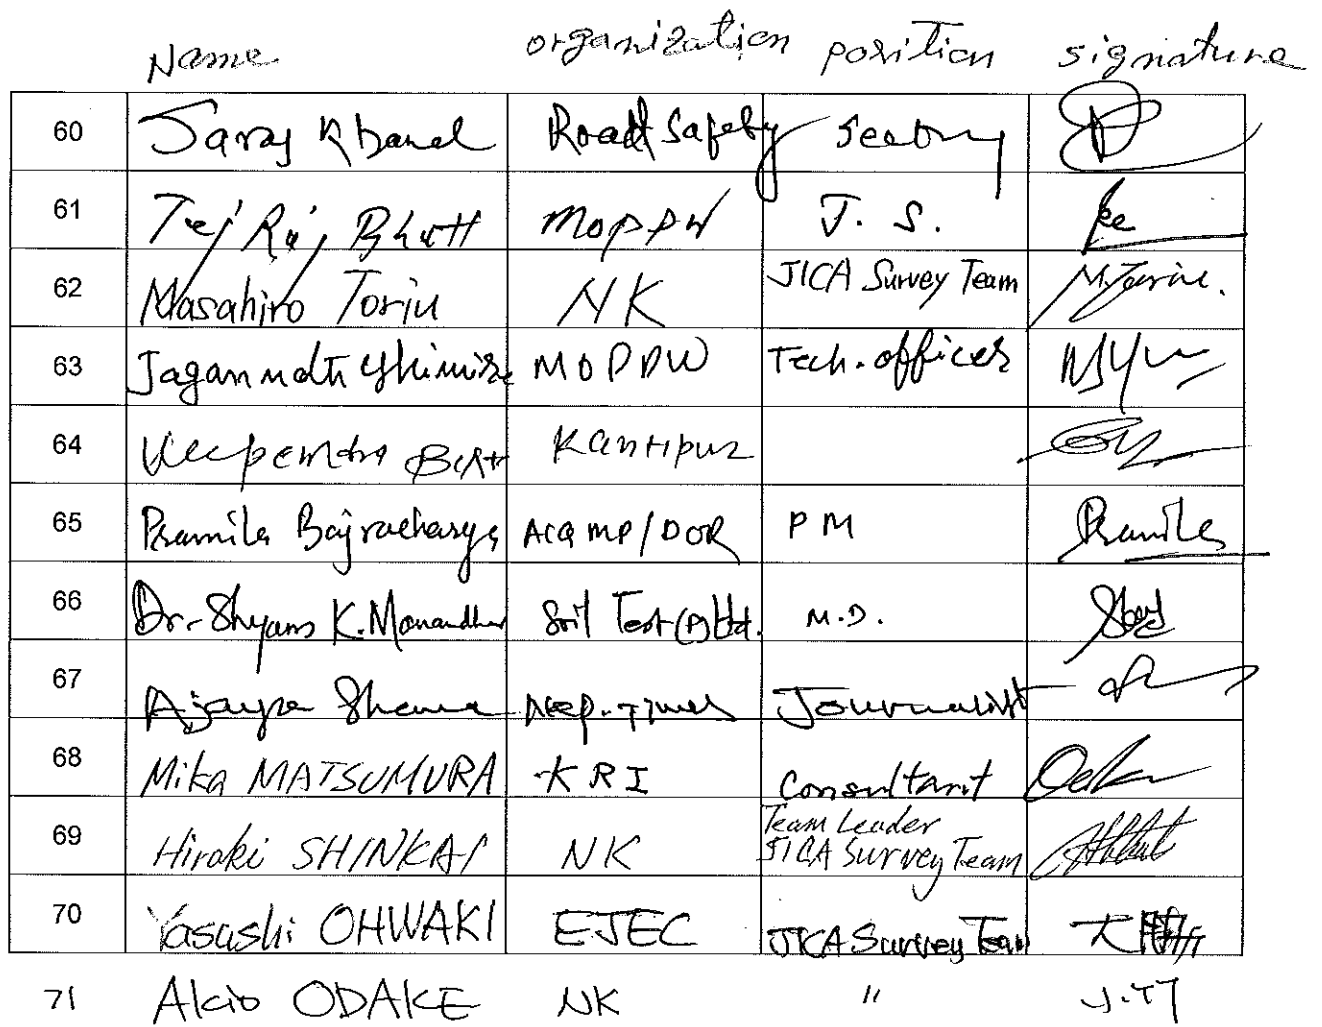 Name organization position signature
60 Saroj Khanal Road Safety
61 Tej Raj Bhatt MOPPW J. S.
62 Masahiro Toriu NK JICA Survey Team M.Toriu.
63 Jagannath Ghimire MOPPW Tech. officer
64 Kantipur
65 Pramila Bajracharya DOR PM Pramila
66 Dr. Shyam K. Manandhar Soil Test (P) Ltd. M.D.
67 Journalist
68 Mika MATSUMURA KRI Consultant
69 Hiroki SHINKAI NK Team Leader
JICA Survey Team
70 Yasushi OHWAKI EJEC JICA Survey Team
71 Akio ODAKE NK 〃